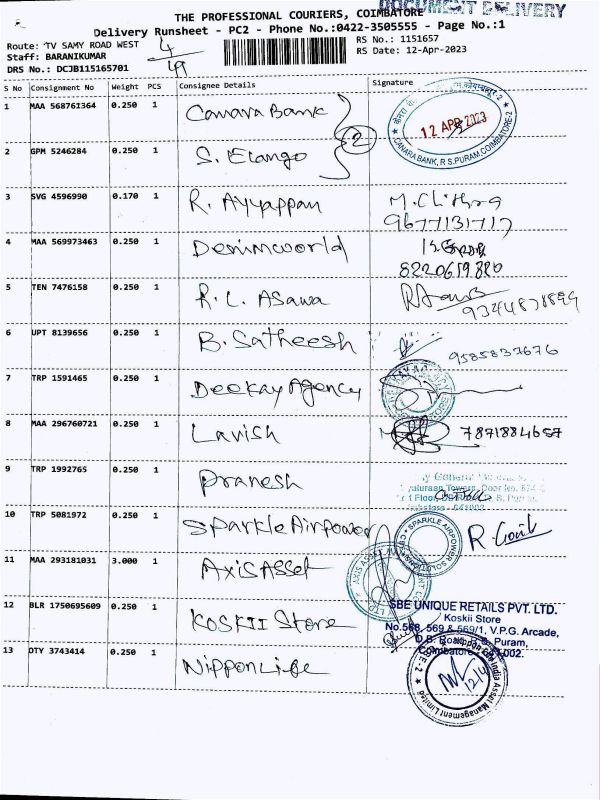 DOCUMENT DELIVERY
THE PROFESSIONAL COURIERS, COIMBATORE
Delivery Runsheet - PC2 - Phone No.:0422-3505555 - Page No.:1
Route: TV SAMY ROAD WEST
RS No.: 1151657
Staff: BARANIKUMAR
RS Date: 12-Apr-2023
DRS No.: DCJB115165701
S No Consignment No Weight PCS Consignee Details Signature
1 MAA 568761364 0.250 1 Canara Bank
12 APR 2023
CANARA BANK, R S.PURAM, COIMBATORE-2
2 GPM 5246284 0.250 1 S. Elango
2
3 SVG 4596990 0.170 1 R. Ayyappan M. Chithra
9677131717
4 MAA 569973463 0.250 1 Denimworld
8220619820
5 TEN 7476158 0.250 1 R. L. Asawa
9344871899
6 UPT 8139656 0.250 1 B. Satheesh 9585837676
7 TRP 1591465 0.250 1 Deekay Agency
8 MAA 296760721 0.250 1 Lavish 7871884657
9 TRP 1992765 0.250 1 Pranesh
10 TRP 5081972 0.250 1 Sparkle Airpower
SPARKLE AIRPOWER
11 MAA 293181031 3.000 1 Axis Asset
12 BLR 1750695609 0.250 1 Koskii Store
SBE UNIQUE RETAILS PVT. LTD.
Koskii Store
No.568, 569 & 569/1, V.P.G. Arcade,
D.B. Road, R.S. Puram,
Coimbatore - 641 002.
13 OTY 3743414 0.250 1 Nippon Life
12/4
India Asset Management Limited